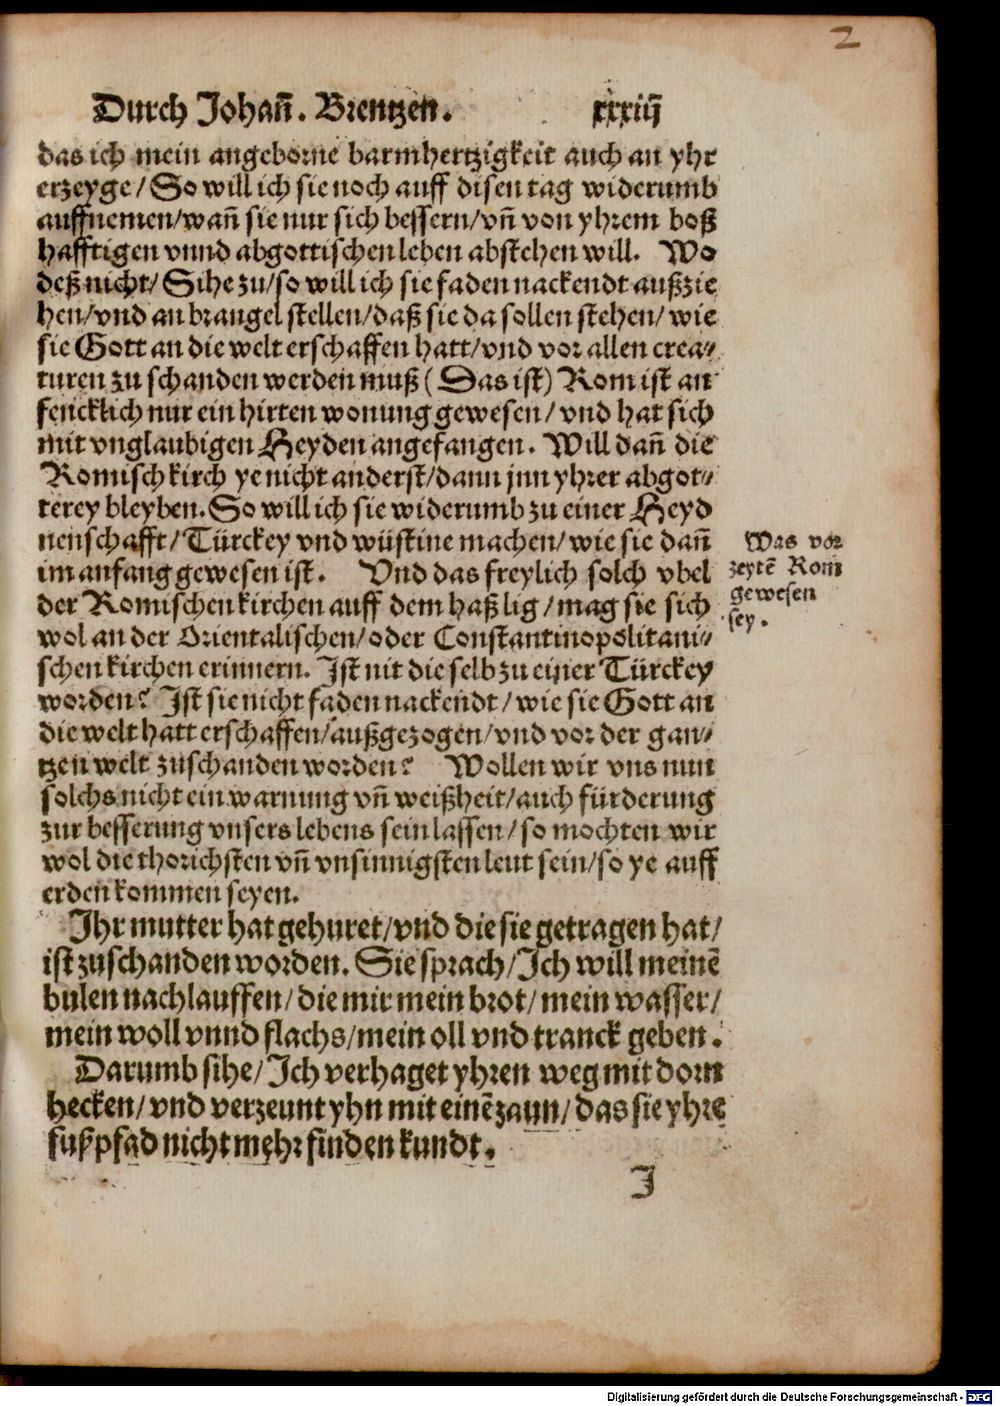 2
Durch Johañ. Brentzen. xxxiij
das ich mein angeborne barmhertzigkeit auch an yhr
erzeyge/So will ich sie noch auff disen tag widerumb
auffnemen/wañ sie nur sich bessern/vñ von yhrem boß
hafftigen vnnd abgottischen leben abstehen will. Wo
deß nicht/Sihe zu/so will ich sie faden nackendt außzie
hen/vnd an brangel stellen/daß sie da sollen stehen/wie
sie Gott an die welt erschaffen hatt/vnd vor allen crea⸗
turen zu schanden werden muß (Das ist) Rom ist an
fencklich nur ein hirten wonung gewesen/vnd hat sich
mit vnglaubigen Heyden angefangen. Will dañ die
Romisch kirch ye nicht anderst/dann jnn yhrer abgot⸗
terey bleyben. So will ich sie widerumb zu einer Heyd
nenschafft/Türckey vnd wüstine machen/wie sie dañ
im anfang gewesen ist. Vnd das freylich solch vbel
der Romischen kirchen auff dem halß lig/mag sie sich
wol an der Orientalischen/oder Constantinopolitani⸗
schen kirchen erinnern. Ist nit die selb zu einer Türckey
worden? Ist sie nicht faden nackendt/wie sie Gott an
die welt hatt erschaffen/außgezogen/vnd vor der gan⸗
tzen welt zuschanden worden? Wollen wir vns nun
solchs nicht ein warnung vñ weißheit/auch fürderung
zur besserung vnsers lebens sein lassen/so mochten wir
wol die thorichsten vñ vnsinnigsten leut sein/so ye auff
erden kommen seyen.
Was vor
zeytẽ Rom
gewesen
sey.
Ihr mutter hat gehuret/vnd die sie getragen hat/
ist zuschanden worden. Sie sprach/Ich will meinẽ
bulen nachlauffen/die mir mein brot/mein wasser/
mein woll vnnd flachs/mein oll vnd tranck geben.
Darumb sihe/Ich verhaget yhren weg mit dorn
hecken/vnd verzeunt yhn mit einẽ zaun/das sie yhre
fußpfad nicht mehr finden kundt.
J
Digitalisierung gefördert durch die Deutsche Forschungsgemeinschaft - DFG